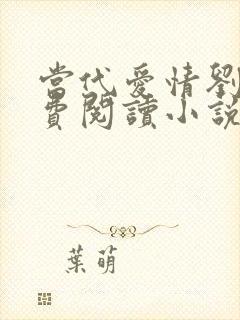 當代愛情劉
費閱讀小說
葉萌